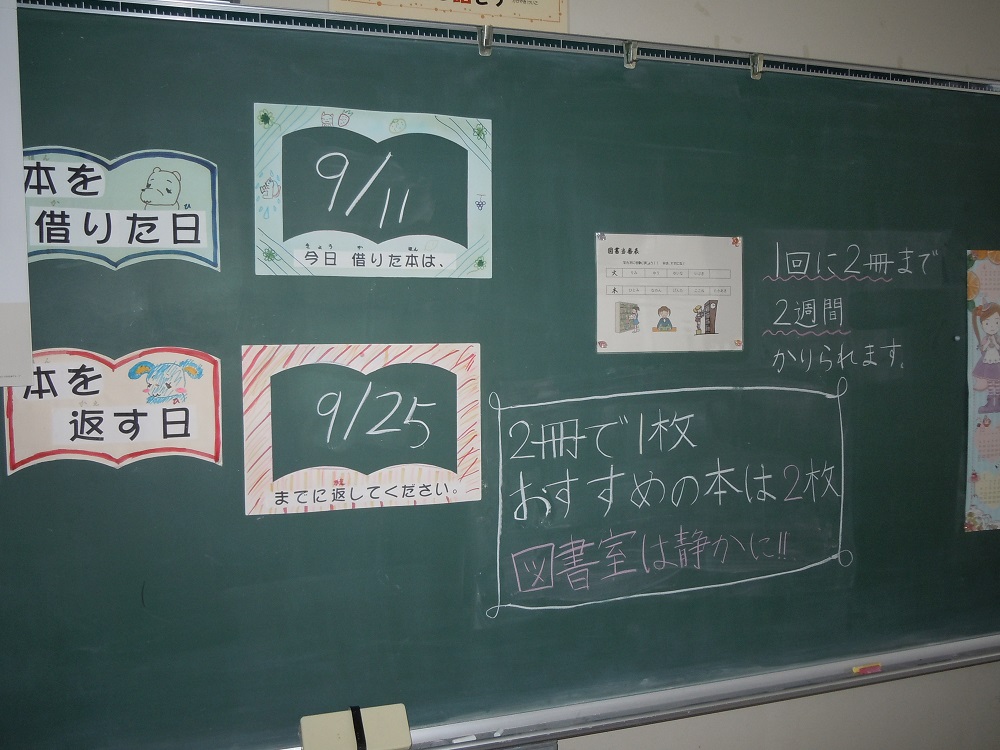 本を
借りた日
9/11
今日 借りた本は、
本を
返す日
9/25
までに返してください。
図書当番表
火
木
1回に2冊まで
2週間
かりられます。
2冊で1枚
おすすめの本は2枚
図書室は静かに!!